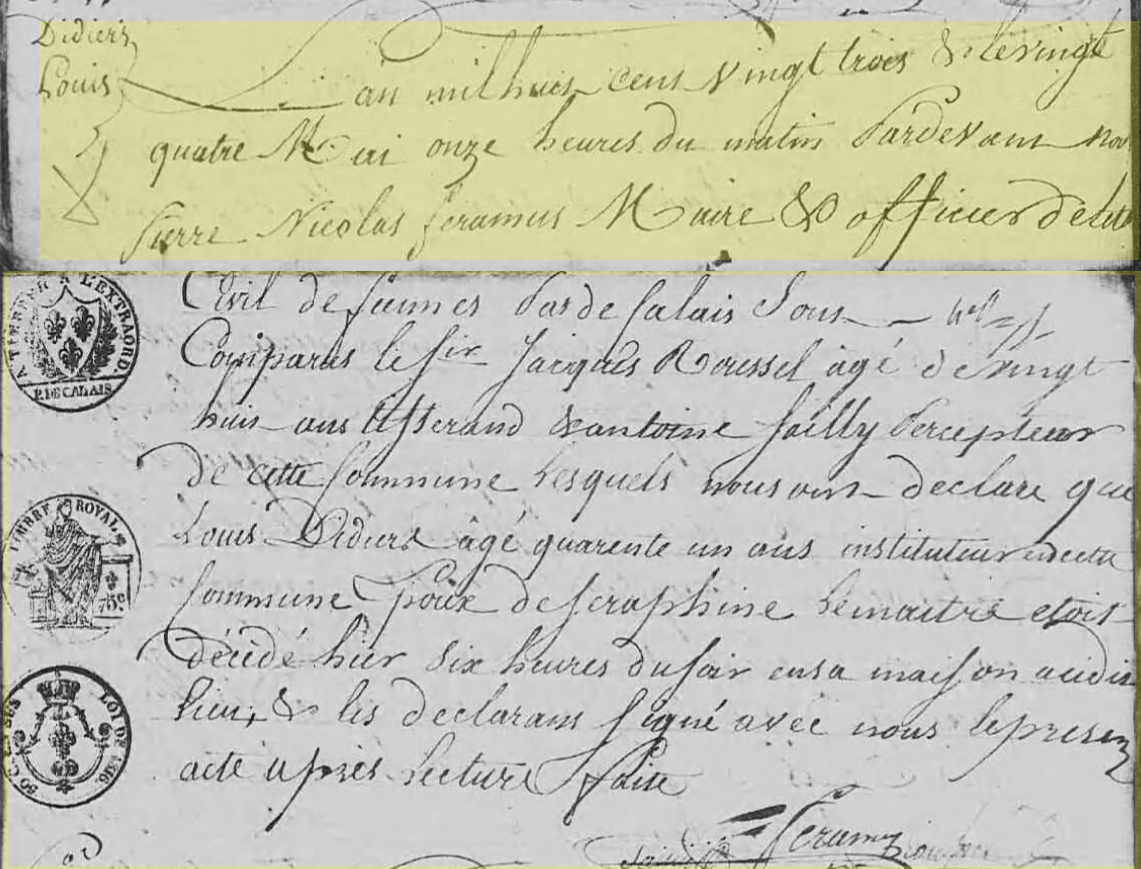 Didiers
Louis
L an mil huit cent vingt trois & le vingt
quatre Mai onze heures du matin Pardevant nou
Pierre Nicolas feramus Maire & officier del'etat
Civil de Pas de Calais Sont
Comparus le Sir Jacques Roussel agé de vingt
huit ans tisserand & antoine Sailly Percepteur
de cette Commune Lesquels nous ont declaré que
Louis Didiers âgé quarente un ans instituteur
Commune Epoux de Seraphine Lemaitre etoit
décédé hier six heures du soir en sa maison audit
lieu, & les declarans signé avec nous le present
acte après Lecture faite
A TIMBRER A L'EXTRAORD.
P. DE CALAIS
TIMBRE ROYAL
75 c
LOI DE 1816
Feramus